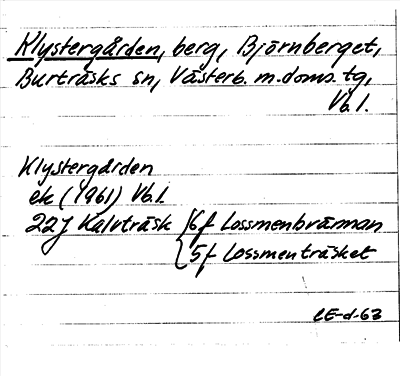 Klystergården, berg, Björnberget,
Burträsks sn, Västerb. m.doms. tg,
Vb.l.
Klystergården
ek (1961) Vb.l.
22J Kalvträsk 6f Lossmenbrännan
5f Lossmenträsket
CE-d-63